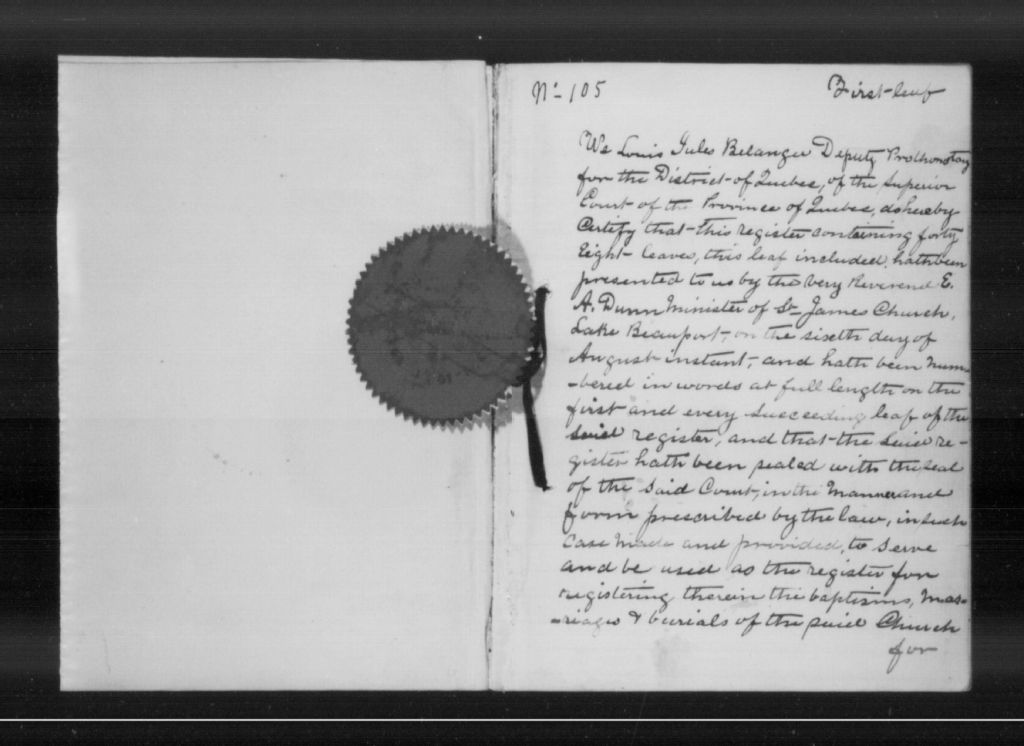 No 105
First leaf
We Louis Jules Belanger Deputy Prothonotary
for the District of Quebec, of the Superior
Court of the Province of Quebec, do hereby
Certify that this register containing forty
Eight leaves, this leaf included, hath been
presented to us by the Very Reverend E.
A. Dunn Minister of St James Church,
Lake Beauport, on the sixth day of
August instant, and hath been num
-bered in words at full length on the
first and every succeeding leaf of the
said register, and that the said re-
gister hath been sealed with the seal
of the said Court, in the manner and
form prescribed by the law, in such
case made and provided, to serve
and be used as the register for
registering therein the baptisms, mar-
-riages & burials of the said Church
for